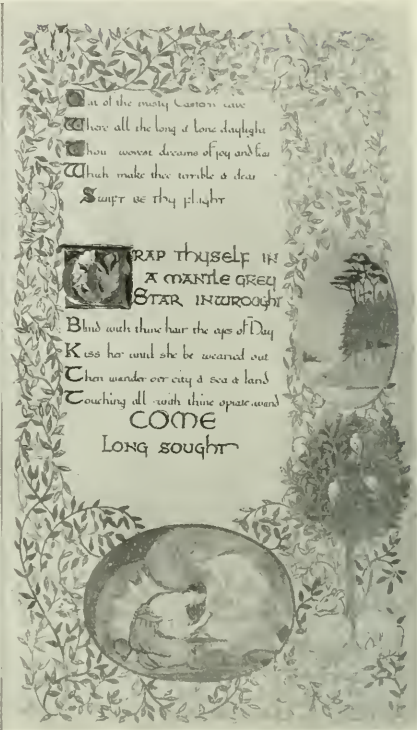 Out of the misty Eastern cave
Where all the long & lone daylight
Thou wovest dreams of joy and fear
Which make thee terrible & dear
SWIFT BE Thy FLIGHT
WRAP ThySELF IN
A MANTLE GREY
STAR INWROUGHT
Blind with thine hair the eyes of Day
Kiss her until she be wearied out
Then wander oer city & sea & land
Touching all with thine opiate wand
COME
LONG SOUGHT